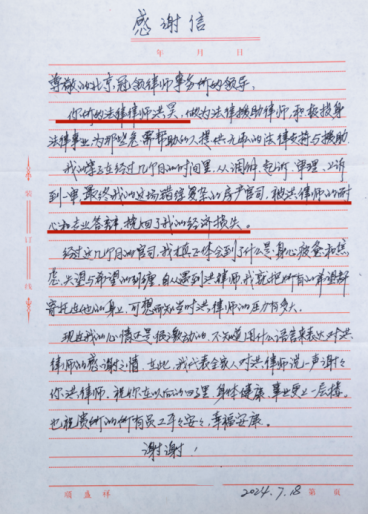 感谢信
年 月 日
尊敬的北京冠领律师事务所的领导:
你所的法律律师洪昊,做为法律援助律师,积极投身
法律事业,为那些急需帮助的人提供无私的法律支持与援助
我的案子在经过几个月的时间里,从调解,起诉,审理,上诉
到一审,最终我的这场错综复杂的房产官司,被洪律师的耐
心和专业答辩,挽回了我的经济损失。
经过这几个月的官司,我真正体会到了什么是身心疲惫和焦
虑,失望与希望的纠缠,自从遇到洪律师,我就把所有的希望都
寄托在他的身上,可想而知当时洪律师的压力有多大。
现在我的心情还是很激动的,不知道用什么语言来表达对洪
律师的感谢之情,在此,我代表全家人对洪律师说一声谢谢
你洪律师,祝你在以后的日子里,身体健康,事业更上一层楼。
也祝贵所的所有员工平平安安,幸福安康。
谢谢!
2024.7.18
第 页